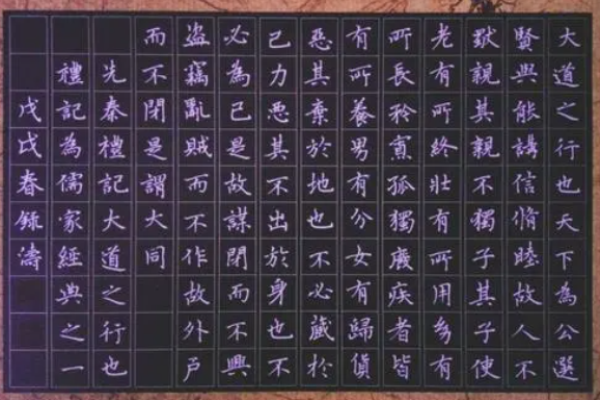 大道之行也天下為公選
賢與能講信脩睦故人不
獨親其親不獨子其子使
老有所終壯有所用幼有
所長矜寡孤獨廢疾者皆
有所養男有分女有歸貨
惡其棄於地也不必藏於
己力惡其不出於身也不
必為己是故謀閉而不興
盜竊亂賊而不作故外戶
而不閉是謂大同
先秦禮記大道之行也
禮記為儒家經典之一
戊戌春錄濤